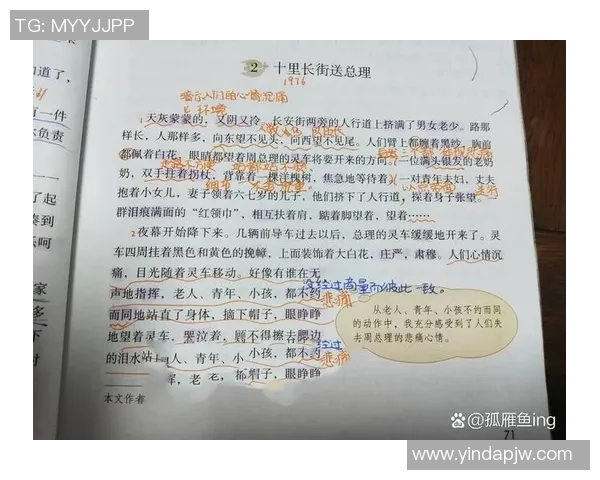 TG: MYYJJPP
2 十里长街送总理
1976
暗示人们的心情沉痛
环境
道了，
1天灰蒙蒙的，又阴又冷。长安街两旁的人行道上挤满了男女老少。路那
样长，人那样多，向东望不见头，向西望不见尾。人们臂上都缠着黑纱，胸前
有一件
都佩着白花，眼睛都望着周总理的灵车将要开来的方向。一位满头银发的老奶
负责
奶，双手拄着拐杖，背靠着一棵洋槐树，焦急地等待着。一对青年夫妇，丈夫
抱着小女儿，妻子领着六七岁的儿子，他们挤下了人行道，探着身子张望。
了起
群泪痕满面的“红领巾”，相互扶着肩，踮着脚望着，望着……
2夜幕开始降下来。几辆前导车过去以后，总理的灵车缓缓地开来了。灵
车四周挂着黑色和黄色的挽幛，上面装饰着大白花，庄严，肃穆。人们心情沉
痛，目光随着灵车移动。好像有谁在无
没经过商量而彼此一致。
声地指挥，老人、青年、小孩，都不约
悲痛
而同地站直了身体，摘下帽子，眼睁睁
地望着灵车，哭泣着，顾不得擦去腮边
经过
的泪水站
人、青年、小
小孩，都不约
悲痛
挥，老
都帽子，眼睁睁
从老人、青年、小孩不约而同
的动作中，我充分感受到了人们失
去周总理的悲痛心情。
本文作者
71
@孤雁鱼ing
www.yindapjw.com